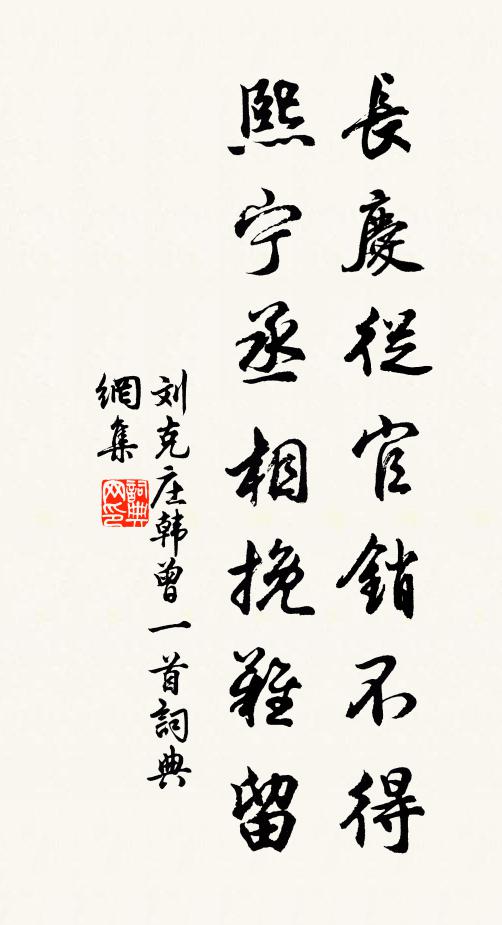 長慶從官銷不得
熙宁丞相挽難留
刘克庄韩曾一首詞典
網集
詞典
网印